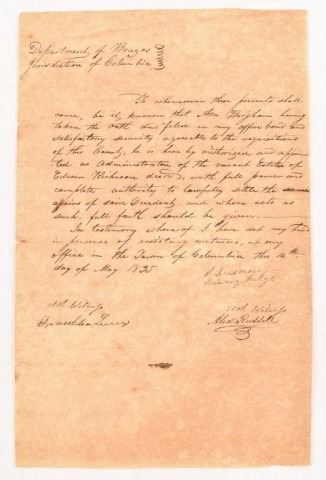 Department of Brazos
Jurisdiction of Columbia
To whomsoever these presents shall
come, be it known that Asa Brigham having
taken the oath and filed in my office bond and
satisfactory security agreeable to the requisitions
of this Court, he is hereby authorized and appoin
ted as Administrator of the vacant Estate of
Edwin Richeson decd, with full power and
complete authority to lawfully settle the
affairs of said Decedent, and whose acts as
such, full faith should be given.
In testimony whereof I have set my hand
in presence of assisting witnesses, at my
office in the Town of Columbia the 14th
day of May 1835
Primary Judge
Ast Witness
Ast Witness
Alex Russell